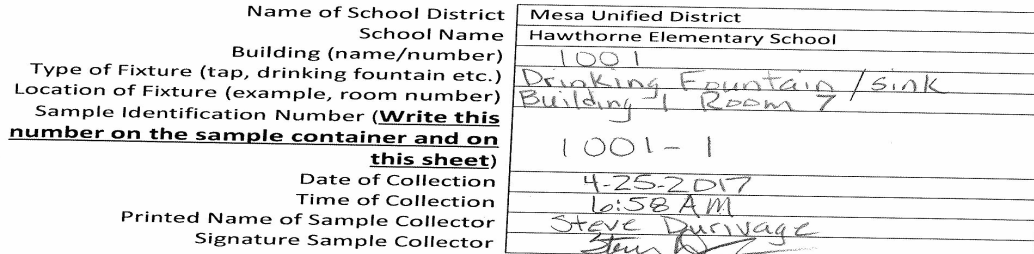 Name of School District Mesa Unified District
School Name Hawthorne Elementary School
Building (name/number) 1001
Type of Fixture (tap, drinking fountain etc.) Drinking Fountain / Sink
Location of Fixture (example, room number) Building 1 Room 7
Sample Identification Number (Write this
number on the sample container and on
this sheet) 1001-1
Date of Collection 4-25-2017
Time of Collection 6:58 AM
Printed Name of Sample Collector Steve Durivage
Signature Sample Collector